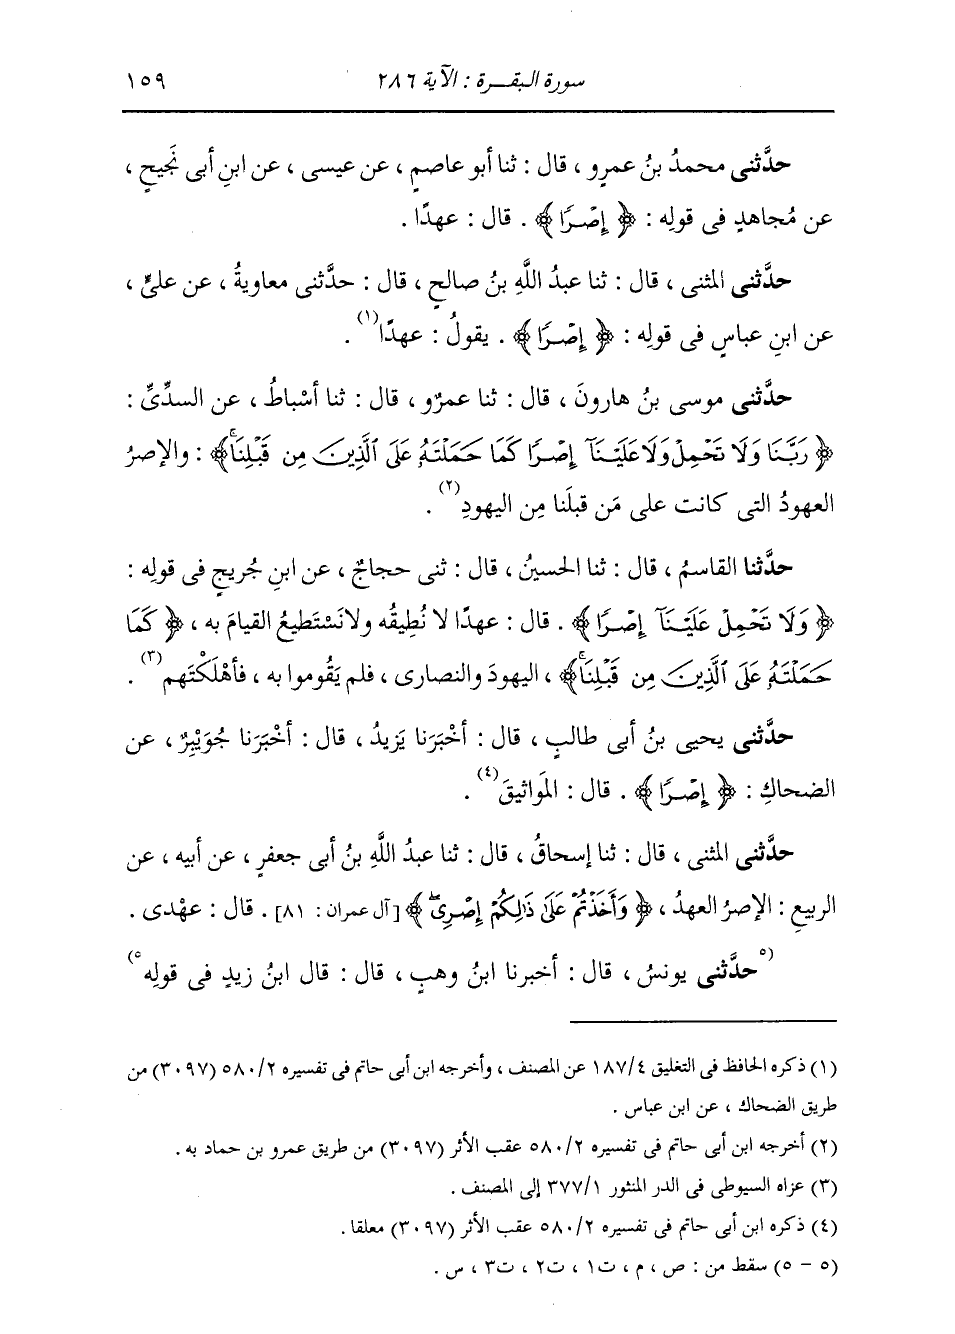 سورة البقـــرة : الآية ٢٨٦ ١٥٩
حدَّثنى محمدُ بنُ عمرٍو ، قال : ثنا أبو عاصمٍ ، عن عيسى ، عن ابنِ أبى نَجيحٍ ،
عن مُجاهدٍ فى قولِه : ﴿ إِصْرًا ﴾ . قال : عهدًا .
حدَّثنى المثنى ، قال : ثنا عبدُ اللَّهِ بنُ صالحٍ ، قال : حدَّثنى معاويةُ ، عن علىٍّ ،
عن ابنِ عباسٍ فى قولِه : ﴿ إِصْرًا ﴾ . يقولُ : عهدًا(١) .
حدَّثنى موسى بنُ هارونَ ، قال : ثنا عمرٌو ، قال : ثنا أسْباطُ ، عن السدِّىِّ :
﴿ رَبَّنَا وَلَا تَحْمِلْ وَلَا عَلَيْنَآ إِصْرًا كَمَا حَمَلْتَهُ عَلَى ٱلَّذِينَ مِن قَبْلِنَاۚ ﴾ : والإصرُ
العهودُ التى كانت على مَن قبلَنا مِن اليهودِ(٢) .
حدَّثنا القاسمُ ، قال : ثنا الحسينُ ، قال : ثنى حجاجٌ ، عن ابنِ جُريجٍ فى قولِه :
﴿ وَلَا تَحْمِلْ عَلَيْنَآ إِصْرًا ﴾ . قال : عهدًا لا نُطِيقُه ولا نَسْتَطيعُ القيامَ به ، ﴿ كَمَا
حَمَلْتَهُ عَلَى ٱلَّذِينَ مِن قَبْلِنَاۚ ﴾ ، اليهودَ والنصارى ، فلم يَقُوموا به ، فأهْلَكْتَهم(٣) .
حدَّثنى يحيى بنُ أبى طالبٍ ، قال : أخْبَرَنا يَزيدُ ، قال : أخْبَرَنا جُوَيْبِرٌ ، عن
الضحاكِ : ﴿ إِصْرًا ﴾ . قال : المَواثيقَ(٤) .
حدَّثنى المثنى ، قال : ثنا إسحاقُ ، قال : ثنا عبدُ اللَّهِ بنُ أبى جعفرٍ ، عن أبيه ، عن
الربيعِ : الإصرُ العهدُ ، ﴿ وَأَخَذْتُمْ عَلَىٰ ذَٰلِكُمْ إِصْرِىۖ ﴾ [آل عمران : ٨١] . قال : عهْدى .
(٥حدَّثنى يونسُ ، قال : أخبرنا ابنُ وهبٍ ، قال : قال ابنُ زيدٍ فى قولِه٥)
(١) ذكره الحافظ فى التغليق ١٨٧/٤ عن المصنف ، وأخرجه ابن أبى حاتم فى تفسيره ٥٨٠/٢ (٣٠٩٧) من
طريق الضحاك ، عن ابن عباس .
(٢) أخرجه ابن أبى حاتم فى تفسيره ٥٨٠/٢ عقب الأثر (٣٠٩٧) من طريق عمرو بن حماد به .
(٣) عزاه السيوطى فى الدر المنثور ٣٧٧/١ إلى المصنف .
(٤) ذكره ابن أبى حاتم فى تفسيره ٥٨٠/٢ عقب الأثر (٣٠٩٧) معلقا .
(٥ - ٥) سقط من : ص ، م ، ت١ ، ت٢ ، ت٣ ، س .